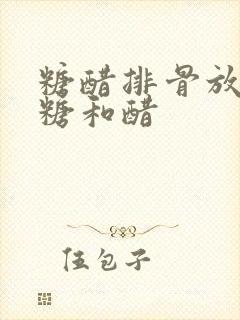 糖醋排骨放
糖和醋
伍包子